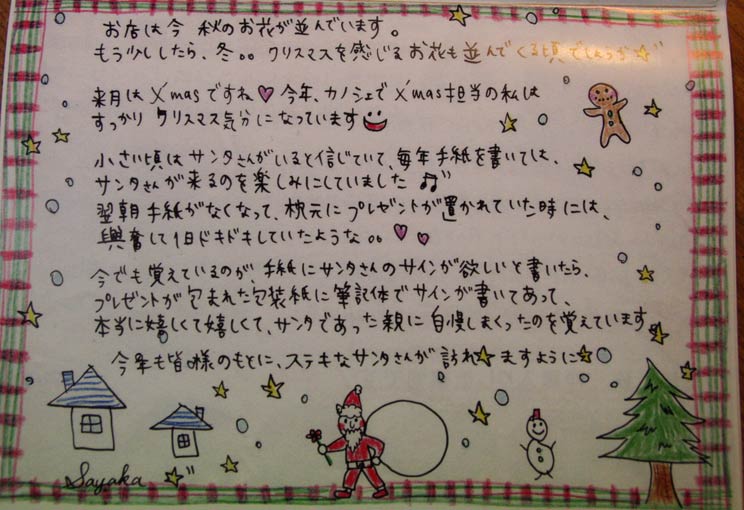 お店は今 秋のお花が並んでいます。
もう少ししたら、冬。。クリスマスを感じるお花も並んでくる頃でしょうか☆
来月はX'masですね♡ 今年、カノシェでX'mas担当の私は
すっかり クリスマス気分になっています
小さい頃はサンタさんがいると信じていて、毎年手紙を書いては、
サンタさんが来るのを楽しみにしていました♬
翌朝手紙がなくなって、枕元にプレゼントが置かれていた時には、
興奮して1日ドキドキしていたような。。♡♡
今でも覚えているのが 手紙にサンタさんのサインが欲しいと書いたら、
プレゼントが包まれた包装紙に筆記体でサインが書いてあって、
本当に嬉しくて嬉しくて、サンタであった親に自慢しまくったのを覚えています。
今年も皆様のもとに、ステキなサンタさんが訪れ★ますように☆
Sayaka